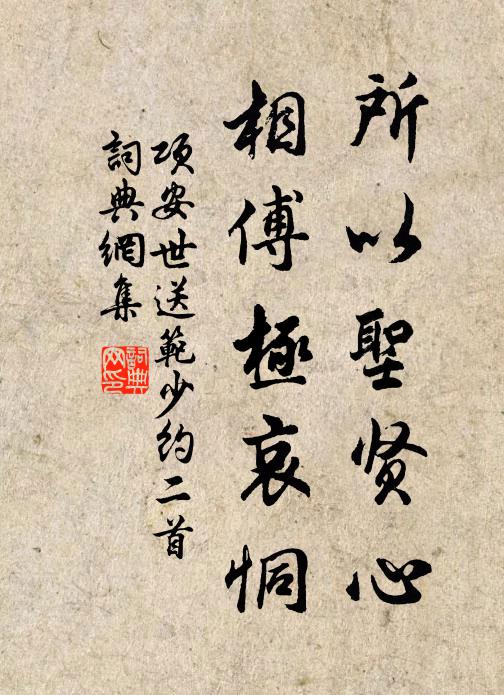 所以聖贤心
相傅極哀恫
项安世送範少约二首
詞典網集
詞典
网印